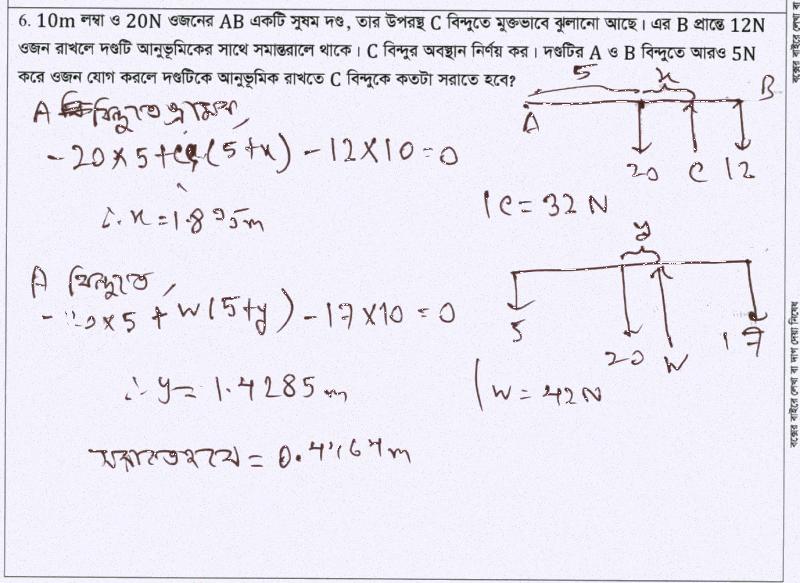 6. 10m লম্বা ও 20N ওজনের AB একটি সুষম দণ্ড, তার উপরস্থ C বিন্দুতে মুক্তভাবে ঝুলানো আছে। এর B প্রান্তে 12N
ওজন রাখলে দণ্ডটি আনুভূমিকের সাথে সমান্তরালে থাকে। C বিন্দুর অবস্থান নির্ণয় কর। দণ্ডটির A ও B বিন্দুতে আরও 5N
করে ওজন যোগ করলে দণ্ডটিকে আনুভূমিক রাখতে C বিন্দুকে কতটা সরাতে হবে?
5 x B
A বিন্দুতে
A
-20×5+C(5+x)-12×10=0
20 C 12
∴x=1.875m
C=32N
y
A বিন্দুতে
×5+W(5+y)-17×10=0
5 20 W 17
∴y=1.4285m
W=42N
= 0.4464m
বক্সের বাইরে লেখা বা দাগ দেয়া নিষেধ